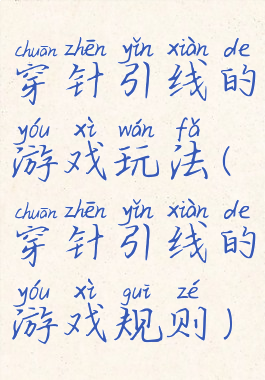 chuān zhēn yǐn xiàn de
穿针引线的
yóu xì wán fǎ
游戏玩法(
chuān zhēn yǐn xiàn de
穿针引线的
yóu xì guī zé
游戏规则)